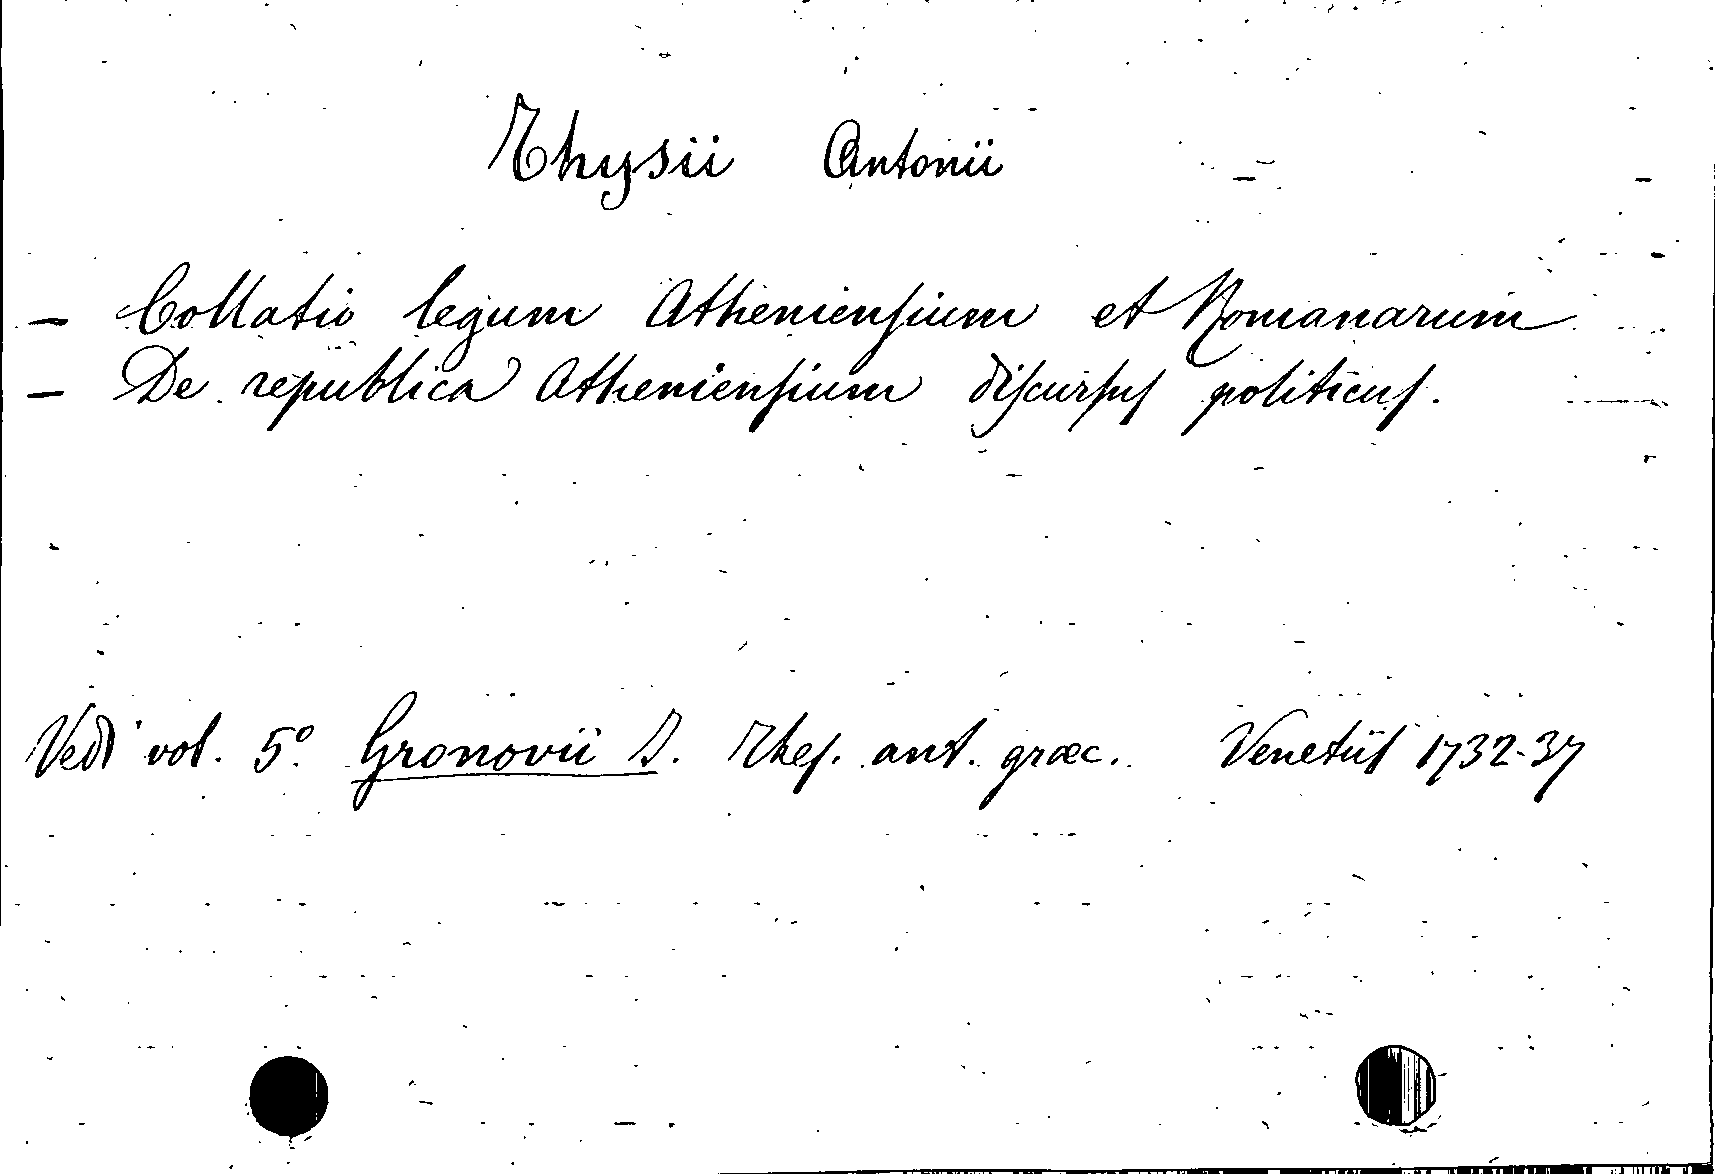 Thysii Antonii
- Collatio legum Atheniensium et Romanarum
- De republica Atheniensium discursus politicus.
Vedi vol. 5° Gronovii J. Thes. ant. graec. Venetiis 1732-37